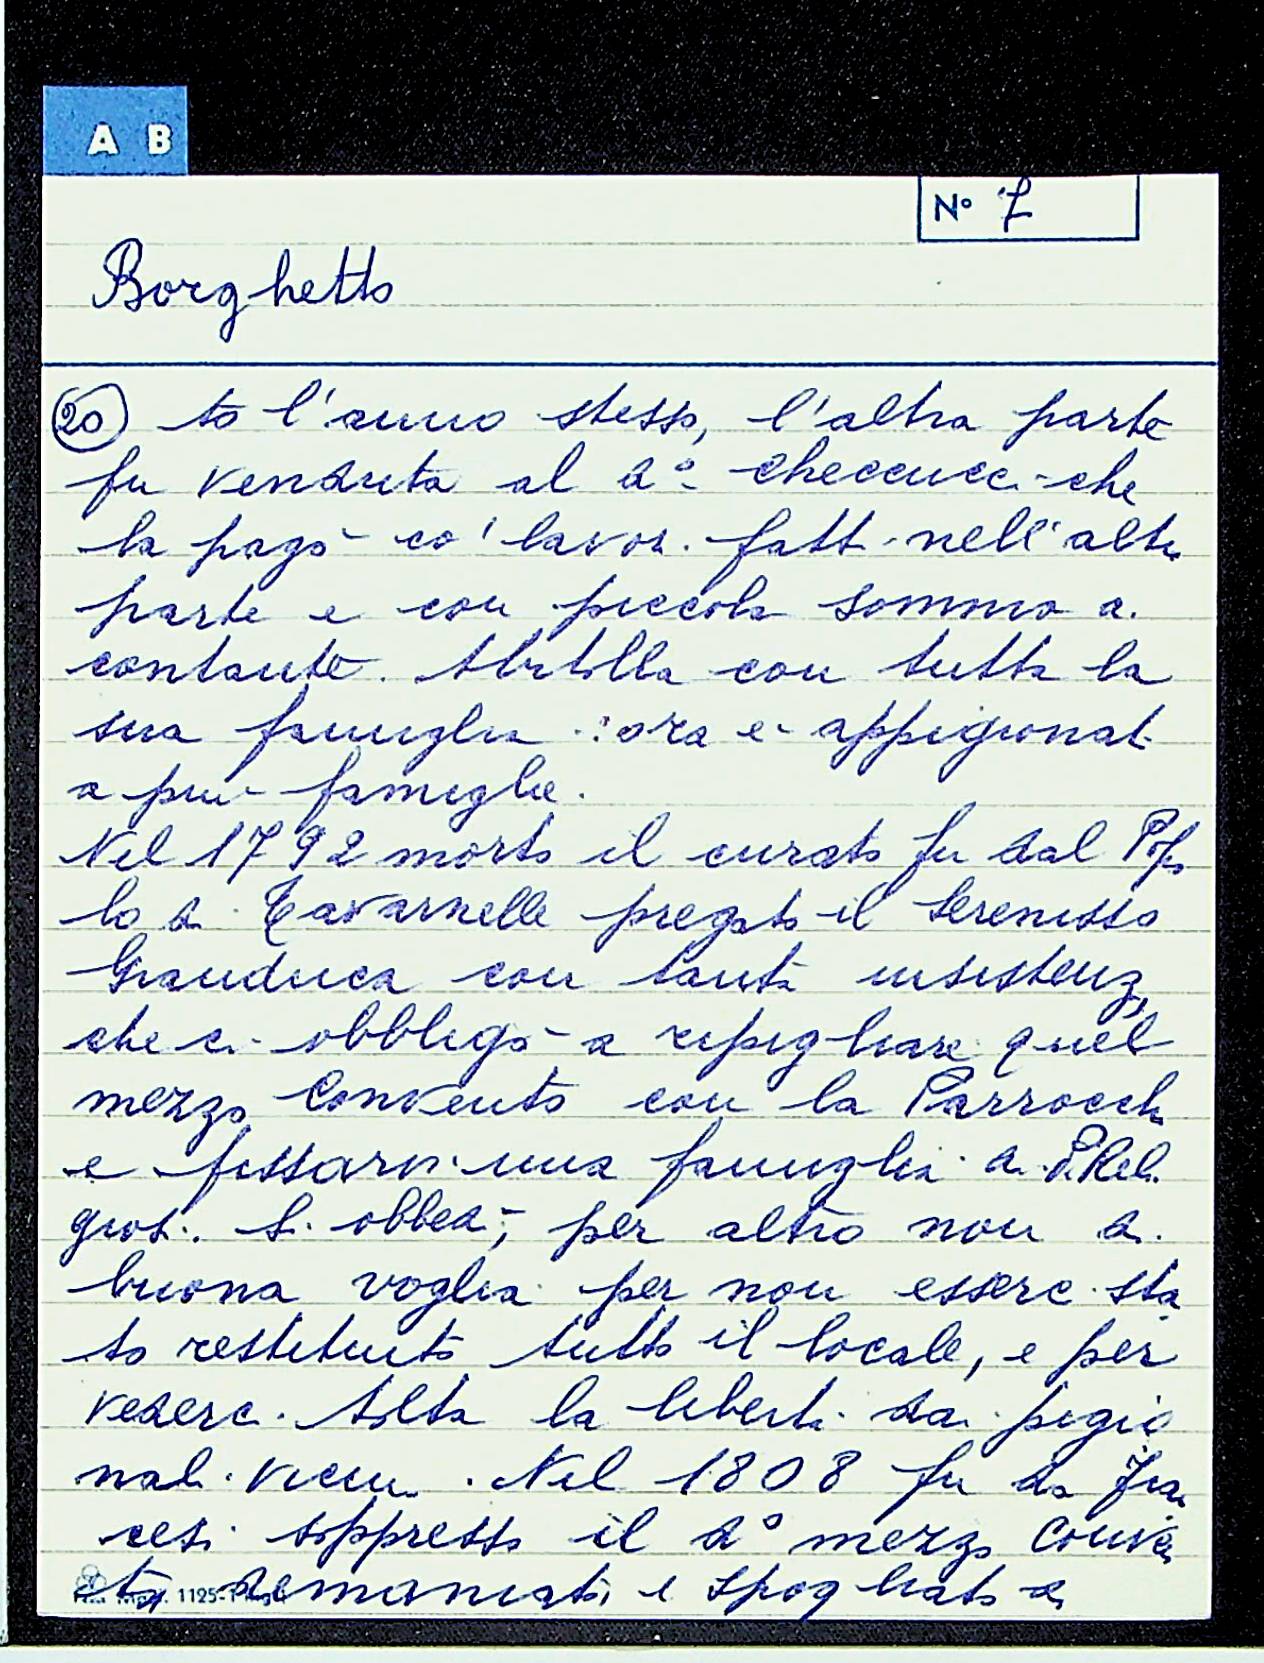 A B
N° 7
Borghetto
20 to l'anno stesso, l'altra parte
fu venduta al d° Checcucci che
la pagò co' lavori fatti nell'altra
parte e con piccola somma a
contante. Abitolla con tutta la
sua famiglia: ora è appigionata
a più famiglie.
Nel 1792 morto il curato fu dal Popo
lo di Tavarnelle pregato il Serenisso
Granduca con tanta insistenza,
che ci obbligò a ripigliare quel
mezzo Convento con la Parrocchia
e fissarvi una famiglia di Reli
giosi. Si obbedì; per altro non di
buona voglia per non essere sta
to restituito tutto il locale, e per
vedere tolta la libertà da pigio
nali vicini. Nel 1808 fu da Fran
cesi soppresso il d° mezzo Conven
to, demaniato, e spogliato di
1125-